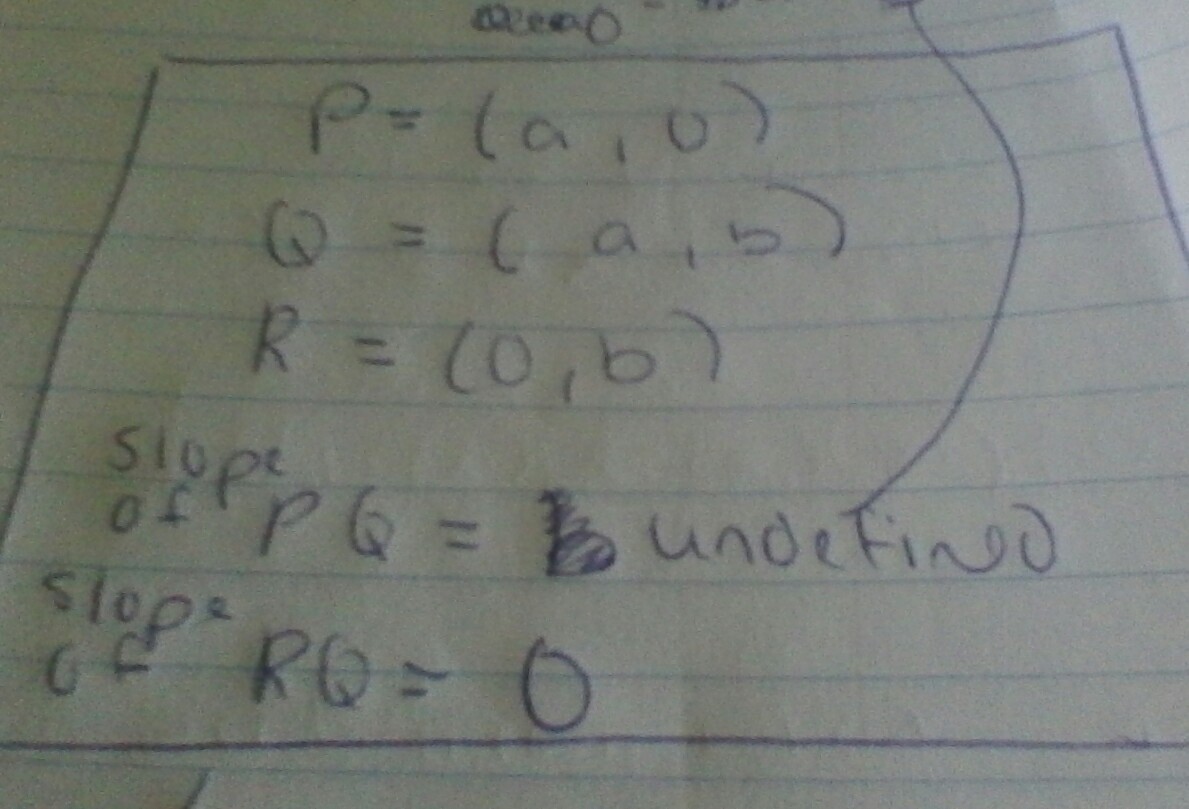 P = (a, 0)
Q = (a, b)
R = (0, b)
slope
of PQ = undefined
slope
of RQ = 0